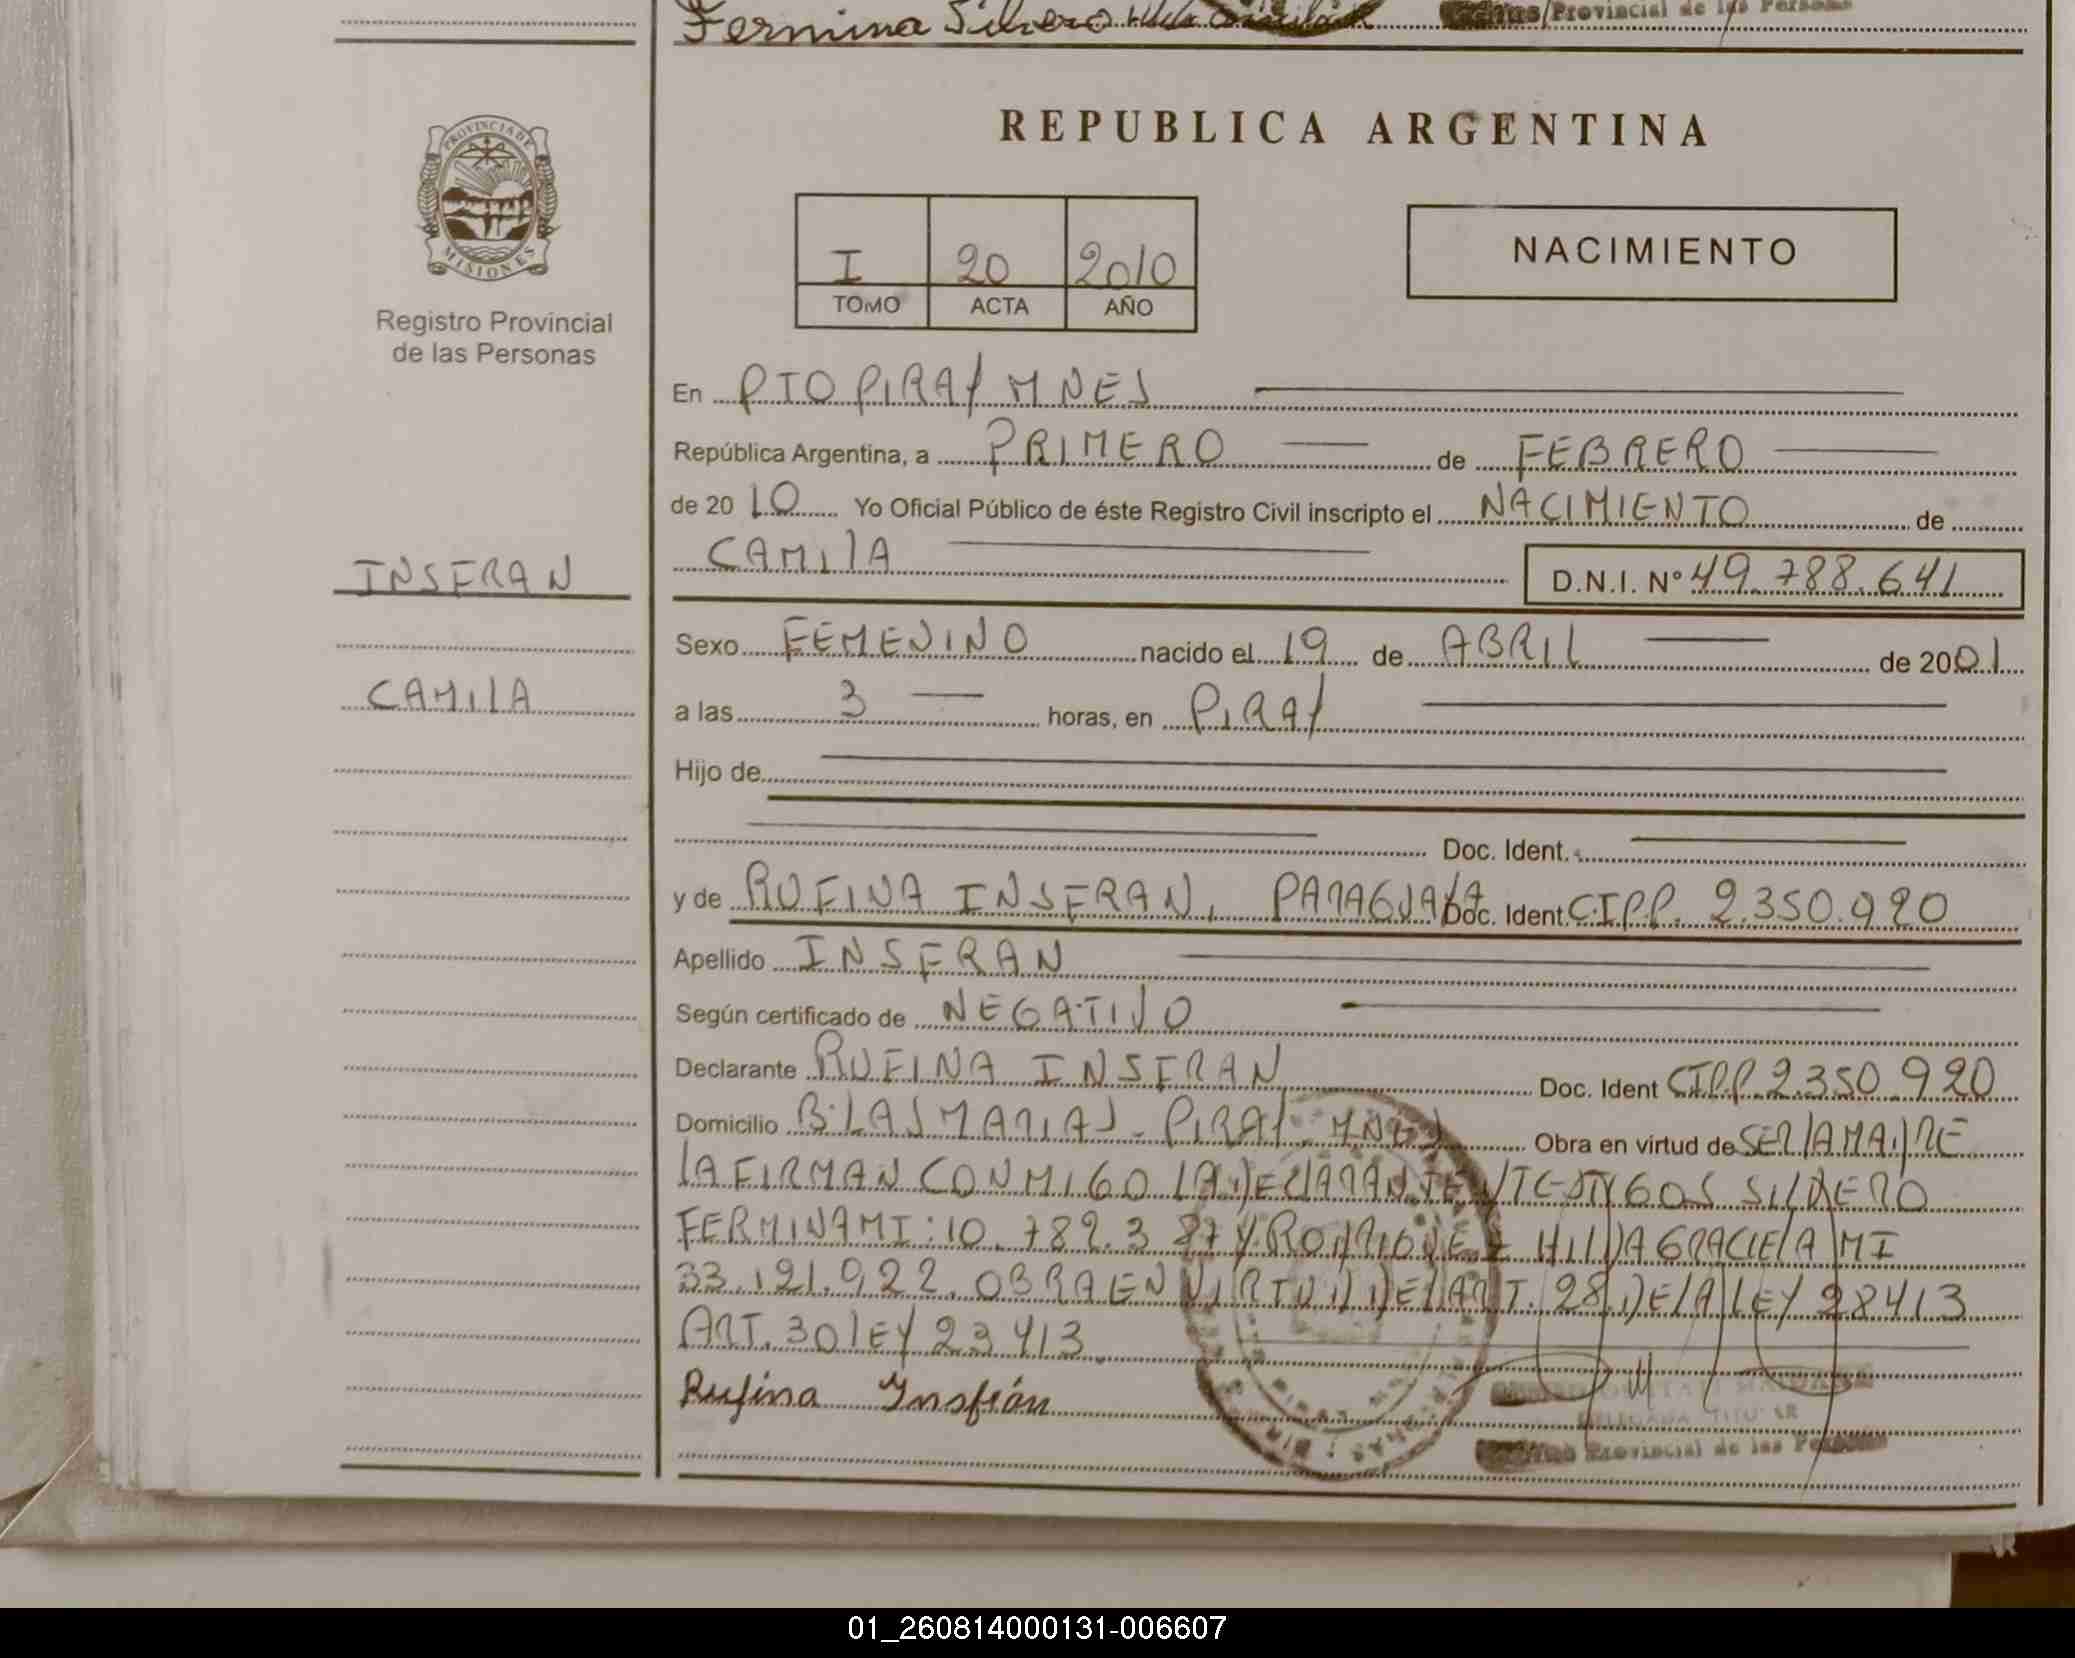 Fermina Silvero
Provincial de las Personas
REPUBLICA ARGENTINA
PROVINCIA DE
MISIONES
Registro Provincial
de las Personas
I 20 2010
TOMO ACTA AÑO
NACIMIENTO
En PTO PIRAY MNES
República Argentina, a PRIMERO de FEBRERO
de 2010 Yo Oficial Público de éste Registro Civil inscripto el NACIMIENTO de
INSFRAN
CAMILA D.N.I. Nº 49.788.641
Sexo FEMENINO nacido el 19 de ABRIL de 2001
CAMILA
a las 3 horas, en PIRAY
Hijo de
Doc. Ident.
y de RUFINA INSFRAN, PARAGUAYA Doc. Ident. CIPP. 2.350.920
Apellido INSFRAN
Según certificado de NEGATIVO
Declarante RUFINA INSFRAN Doc. Ident CIPP 2.350.920
Domicilio B: LAS MARIAS - PIRAY MNES Obra en virtud de SER LA MADRE
LA FIRMAN CONMIGO LA DECLARANTE Y TESTIGOS SILVERO
FERMINA MI: 10.782.387 Y RODRIGUEZ HILDA GRACIELA MI
33.121.922. OBRA EN VIRTUD DEL ART. 28. DE LA LEY 28413
ART. 30 LEY 23413
Rufina Insfrán
DELEGADA TITULAR
Provincial de las Personas
01_260814000131-006607